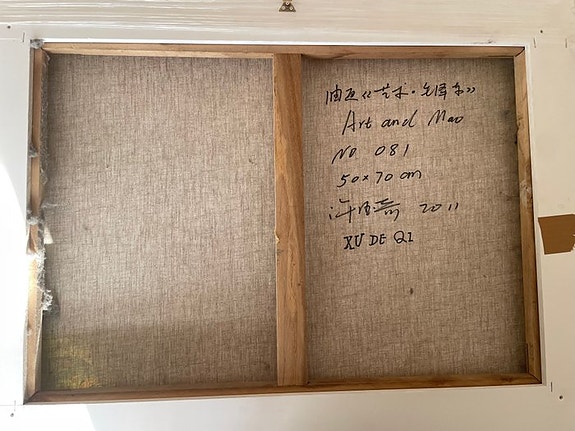 油画《艺术·毛泽东》
Art and Mao
No 081
50×70cm
许德奇 2011
XU DE QI